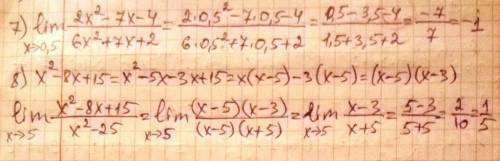 7) lim x→0,5 (2x²-7x-4)/(6x²+7x+2) = (2·0,5²-7·0,5-4)/(6·0,5²+7·0,5+2) = (0,5-3,5-4)/(1,5+3,5+2) = -7/7 = -1
8) x²-8x+15=x²-5x-3x+15=x(x-5)-3(x-5)=(x-5)(x-3)
lim x→5 (x²-8x+15)/(x²-25) = lim x→5 ((x-5)(x-3))/((x-5)(x+5)) = lim x→5 (x-3)/(x+5) = (5-3)/(5+5) = 2/10 = 1/5